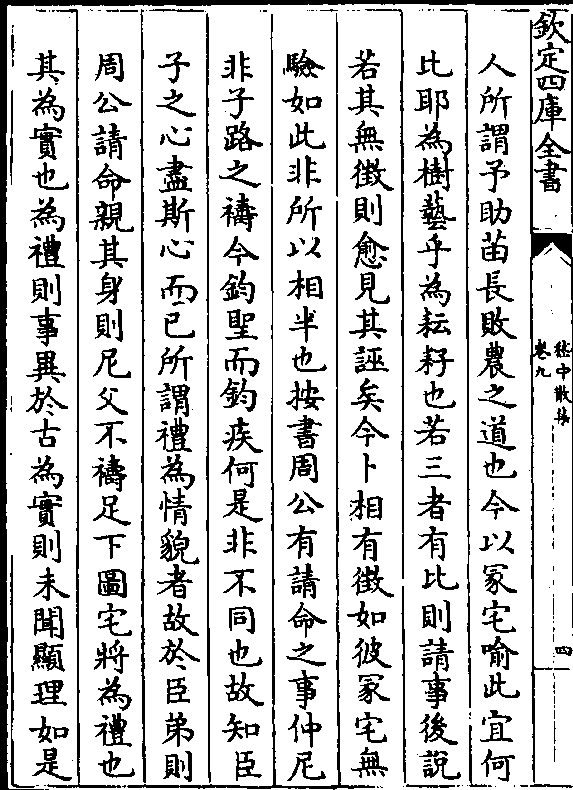 欽定四庫全書
嵇中散集
卷九
四
人所謂予助苗長敗農之道也今以冢宅喻此宜何
比耶為樹藝乎為耘耔也若三者有比則請事後說
若其無徵則愈見其誣矣今卜相有徵如彼冢宅無
驗如此非所以相半也按書周公有請命之事仲尼
非子路之禱今鈞聖而鈞疾何是非不同也故知臣
子之心盡斯心而已所謂禮為情貌者故於臣弟則
周公請命親其身則尼父不禱足下圖宅將為禮也
其為實也為禮則事異於古為實則未聞顯理如是